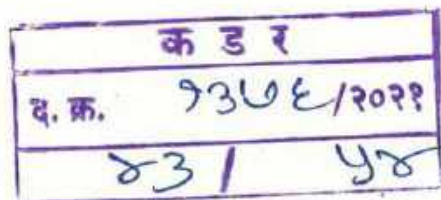 क ड र
द. क्र. १३७६/२०२१
४३ / ५४